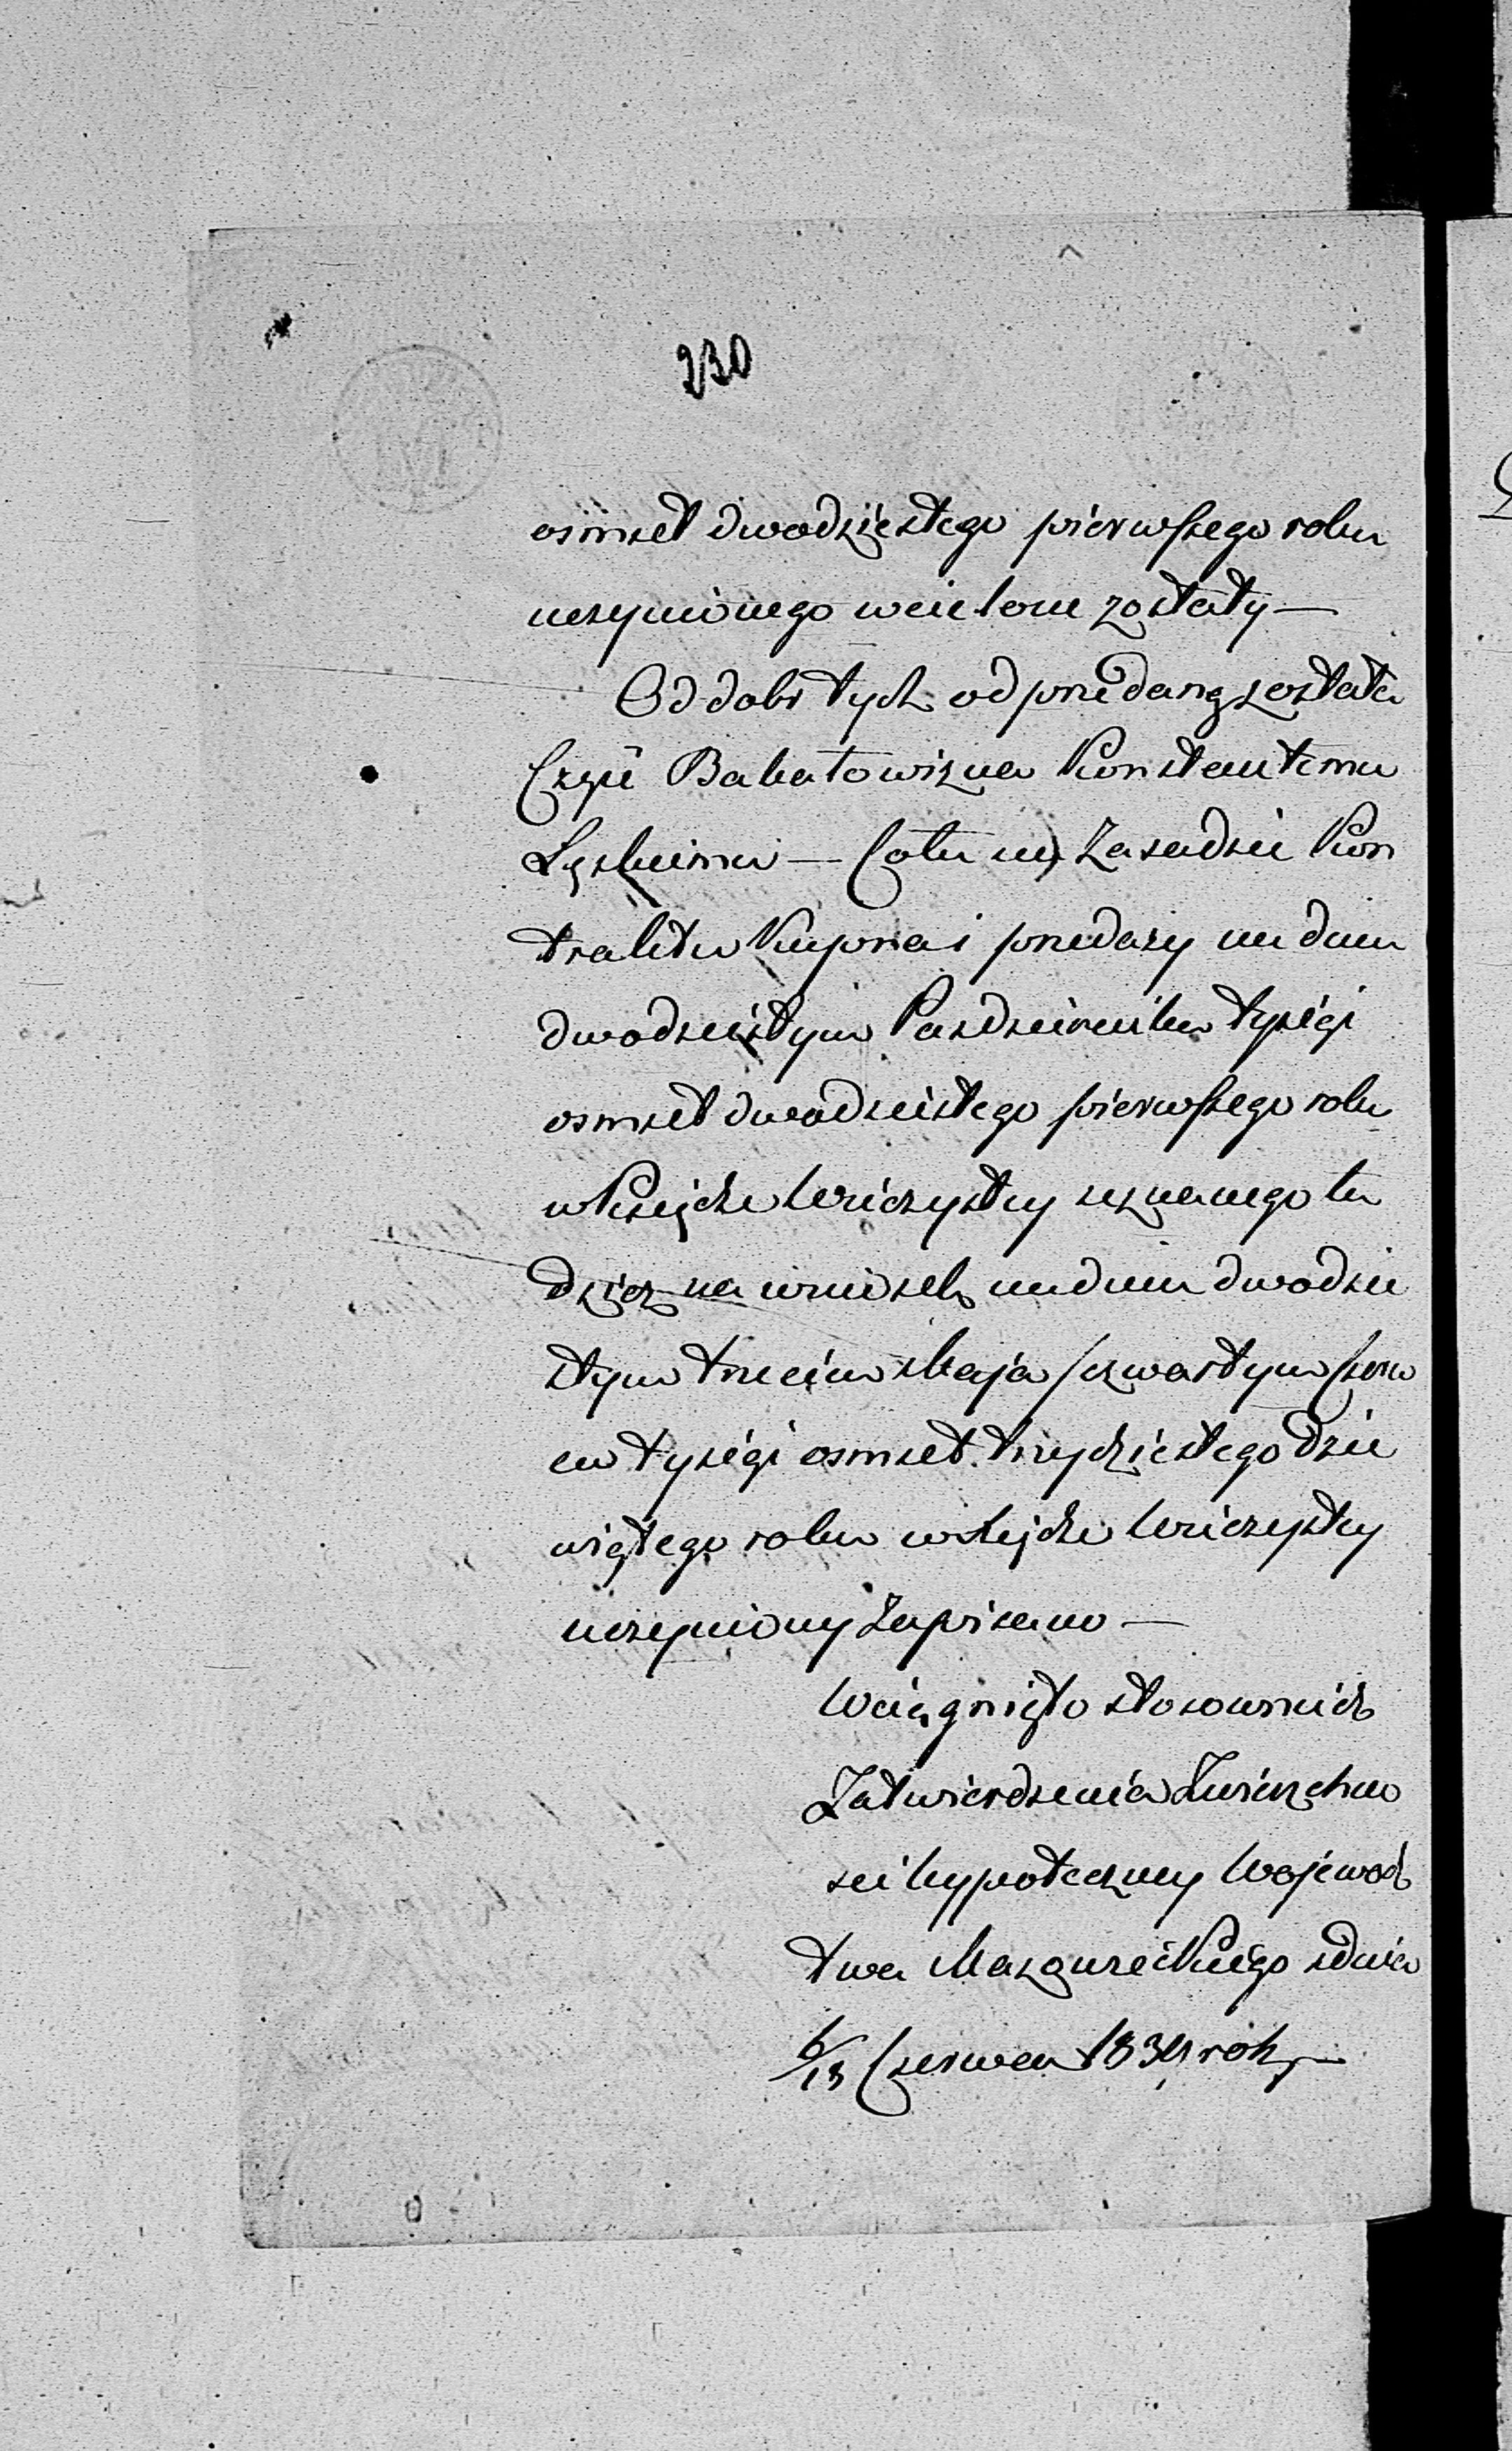 230
ośmset dwadziestego pierwszego roku
uczynionego wcielone zostały —
Od dobr tych odprzedaną została
Część Bakałowizna Konstantemu
Łęskiemu — Co tu na Zasadzie Kon
traktu Kupna i przedaży na dniu
dwudziestym Pazdziernika tysiąc
osmset dwudziestego pierwszego roku
w Księdze Wieczystey zeznanego tu
dzież na wniosek na dniu dwudzie
stym trzecim Maja / czwartym Czerw
ca tysiąc osmset trzydziestego dzie
wiątego roku w Księdze Wieczystey
uczyniony Zapisano —
Wciągnięto stosownie do
Zatwierdzenia Zwierzchno
sci hypoteczney Wojewodz
twa Mazowieckiego z dnia
6/18 Czerwca 1839 roku —